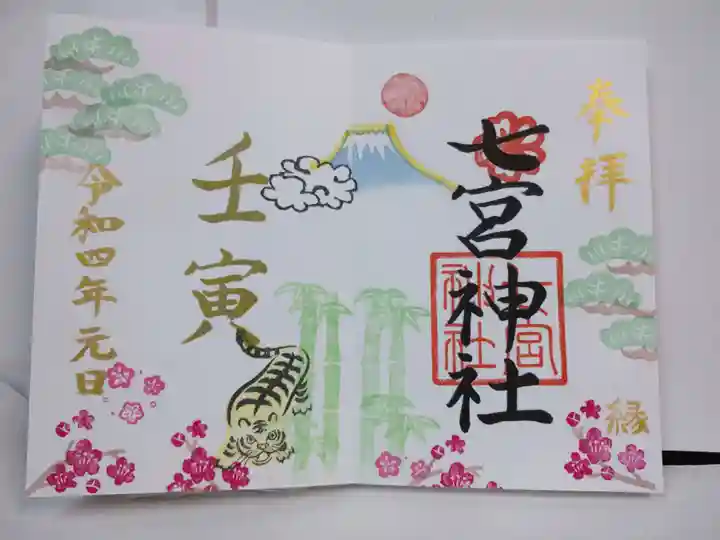 奉拝
七宮神社
七宮
神社
縁
壬寅
令和四年元日